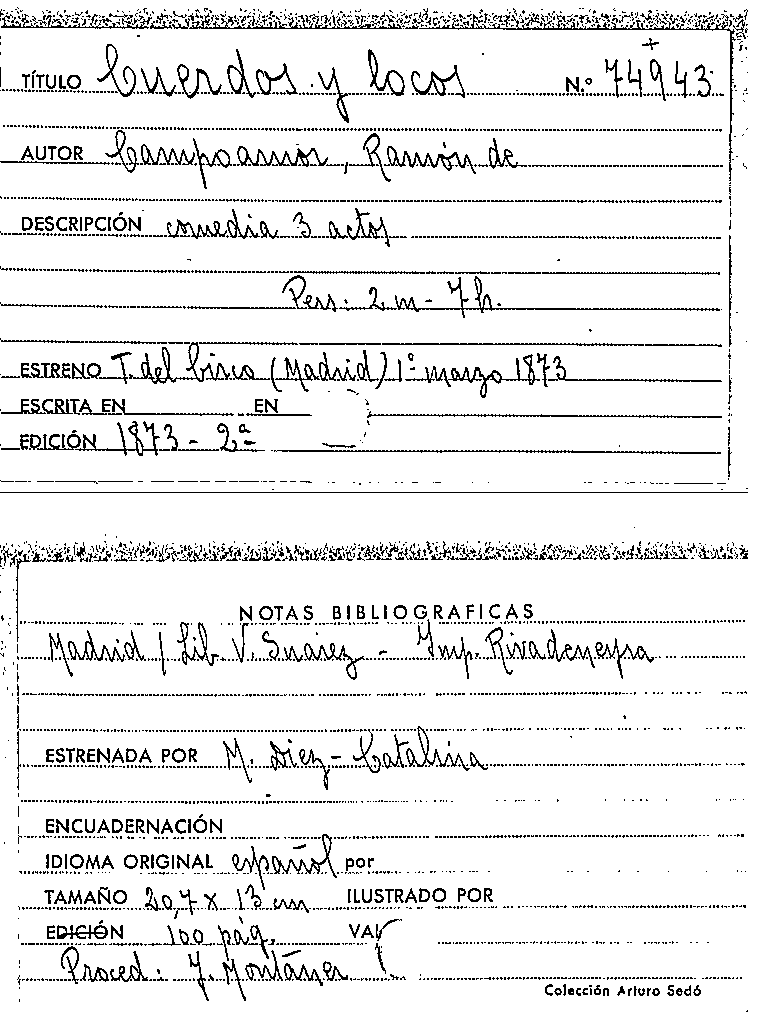 TÍTULO Cuerdos y locos N.º 74943
AUTOR Campoamor, Ramón de
DESCRIPCIÓN comedia 3 actos
Pers: 2 m - 7 h.
ESTRENO T. del Circo (Madrid) 1º marzo 1873
ESCRITA EN EN
EDICIÓN 1873 - 2ª
NOTAS BIBLIOGRAFICAS
Madrid / Lib. V. Suárez - Imp. Rivadeneyra
ESTRENADA POR M. Diez - Catalina
ENCUADERNACIÓN
IDIOMA ORIGINAL español por
TAMAÑO 20,7 x 13 cm ILUSTRADO POR
EDICIÓN 100 pág. VAL
Proced: J. Montaner
Colección Arturo Sedó